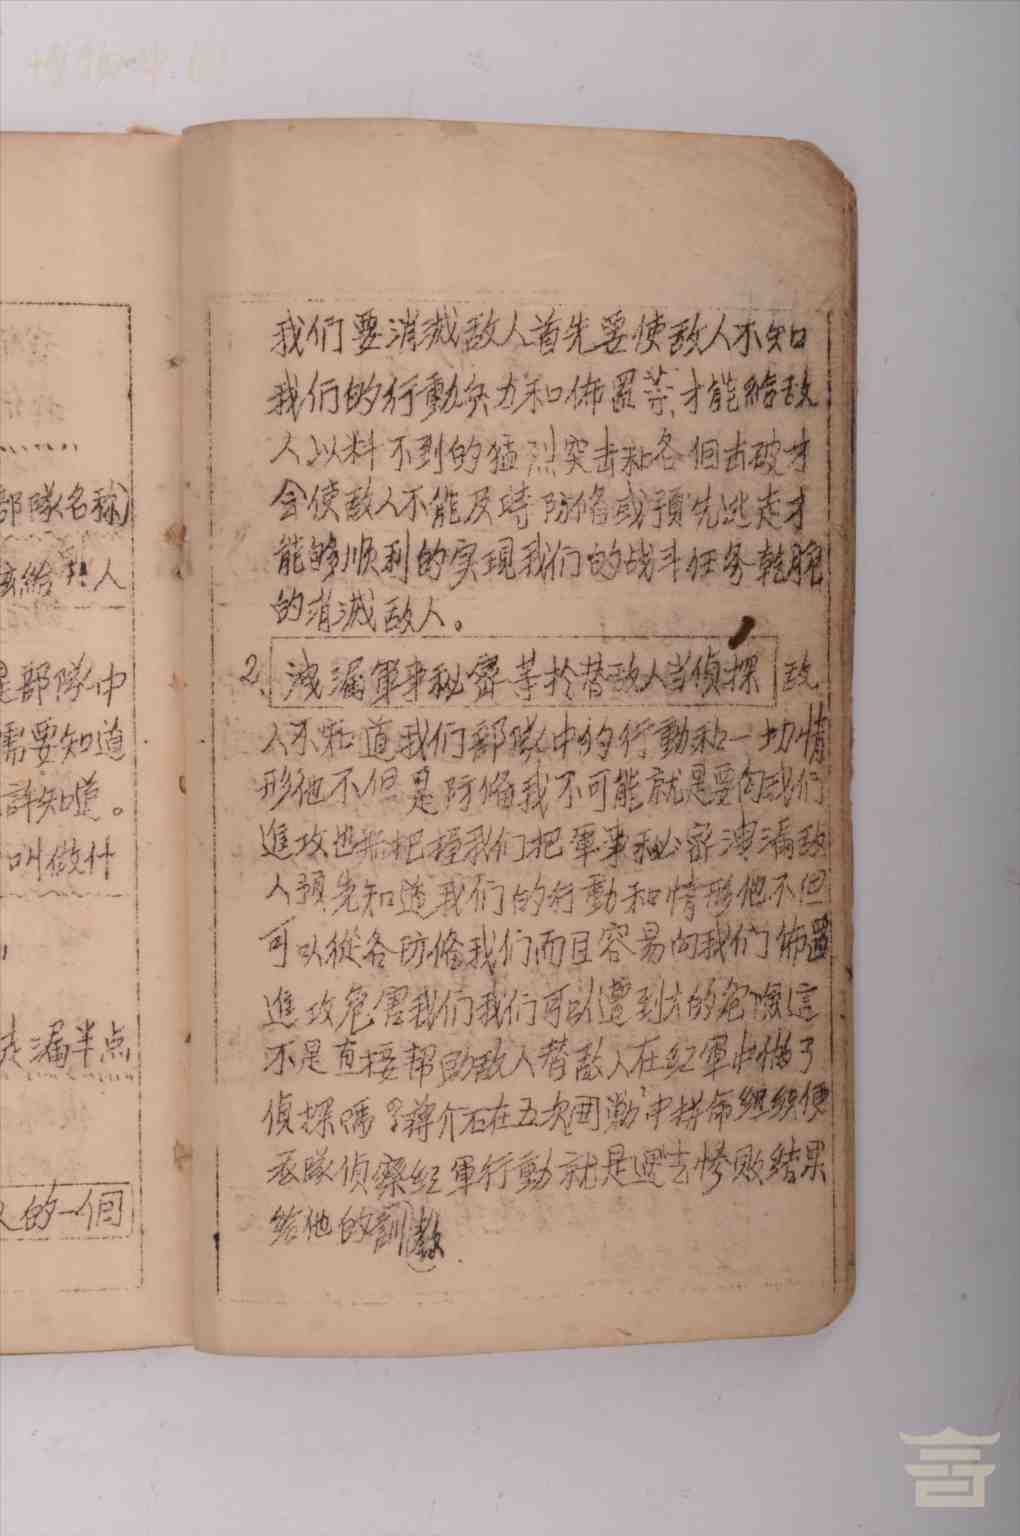 我们要消滅敌人首先要使敌人不知
我们的行動兵力和佈置等,才能給敌
人以料不到的猛烈突击和各個击破才
会使敌人不能及時防偹或預先逃走才
能够順利的实現我们的战斗任务乾脆
的消滅敌人。
2、洩漏軍事秘密等於替敌人当偵探 敌
人不知道我们部隊中的行動和一切情
形他不但是防偹我不可能就是要向我们
進攻也
把握我们把軍事秘密洩漏敌
人預先知道我们的行動和情形他不但
可以從各防偹我们而且容易向我们佈置
進攻危害我们我们可以遭到大的危險這
不是直接帮助敌人替敌人在红軍中做了
偵探嗎?蒋介石在五次囲勦中拼命組織便
衣隊偵察红軍行動就是過去惨敗結果
給他的訓教
部隊(名称)
給
人
是部隊中
需要知道
許知道。
叫做什
走漏半点
人的一個